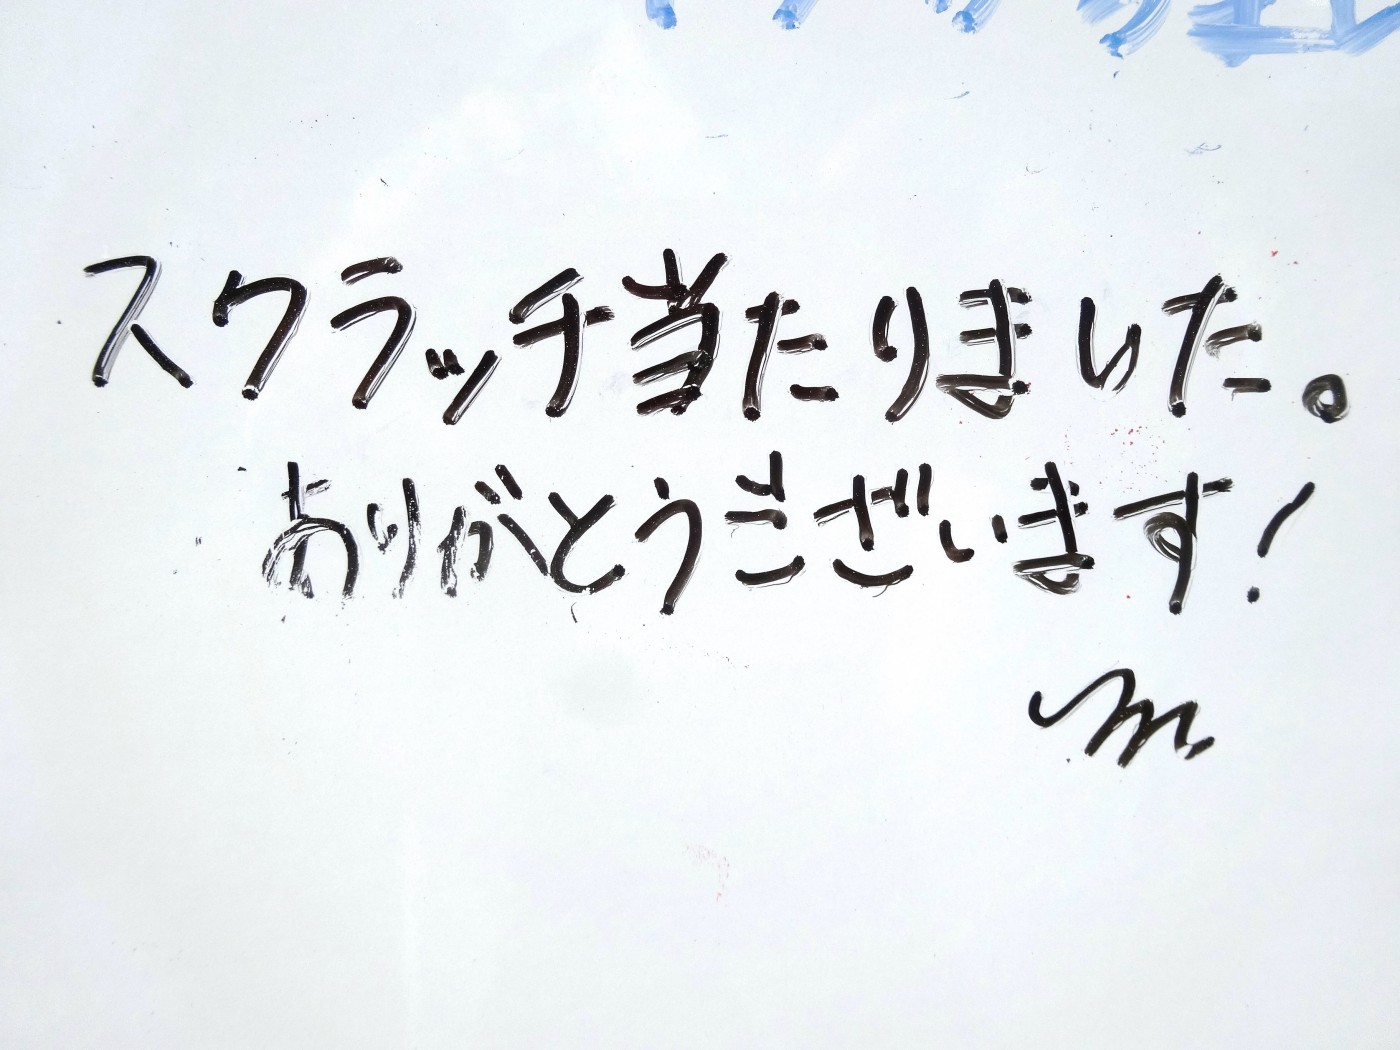 スクラッチ当たりました。
ありがとうございます!